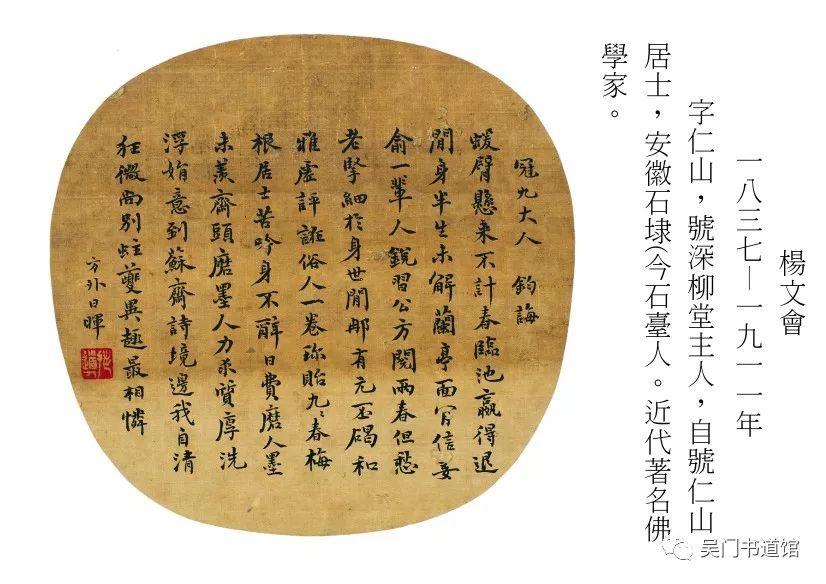 楊文會
一八三七—一九一一年
字仁山，號深柳堂主人，自號仁山
居士，安徽石埭(今石臺人。近代著名佛
學家。
冠九大人 鈞誨
蝯臂懸來不計春臨池贏得退
閒身半生未解蘭亭面肎信
一輩人銳習公方閱兩春但愁
老學細於身世閒那有元丕碣和
雅虛評誑俗人一卷珍貽九〻春梅
根居士苦吟身不辭日費磨人墨
未羨齊頭磨墨人力求質厚洗
浮媚意到蘇齋詩境邊我自清
狂微尚別蚿夔異趣最相憐
方外日暉
吴门书道馆